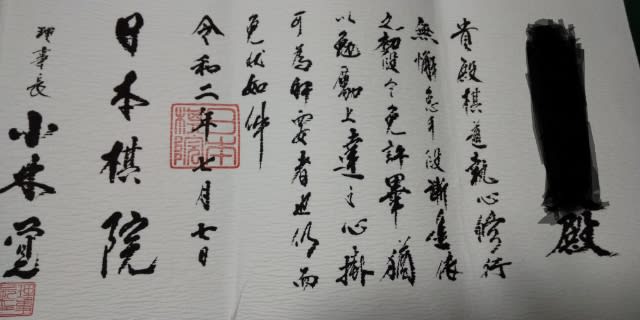 殿
貴殿棋道執心修行
無懈怠手段漸進依
之初段令免許畢猶
以勉勵上達之心掛
可為肝要者也仍而
免状如件
令和二年七月七日
日本棋院
日本棋院
理事長 小林覚